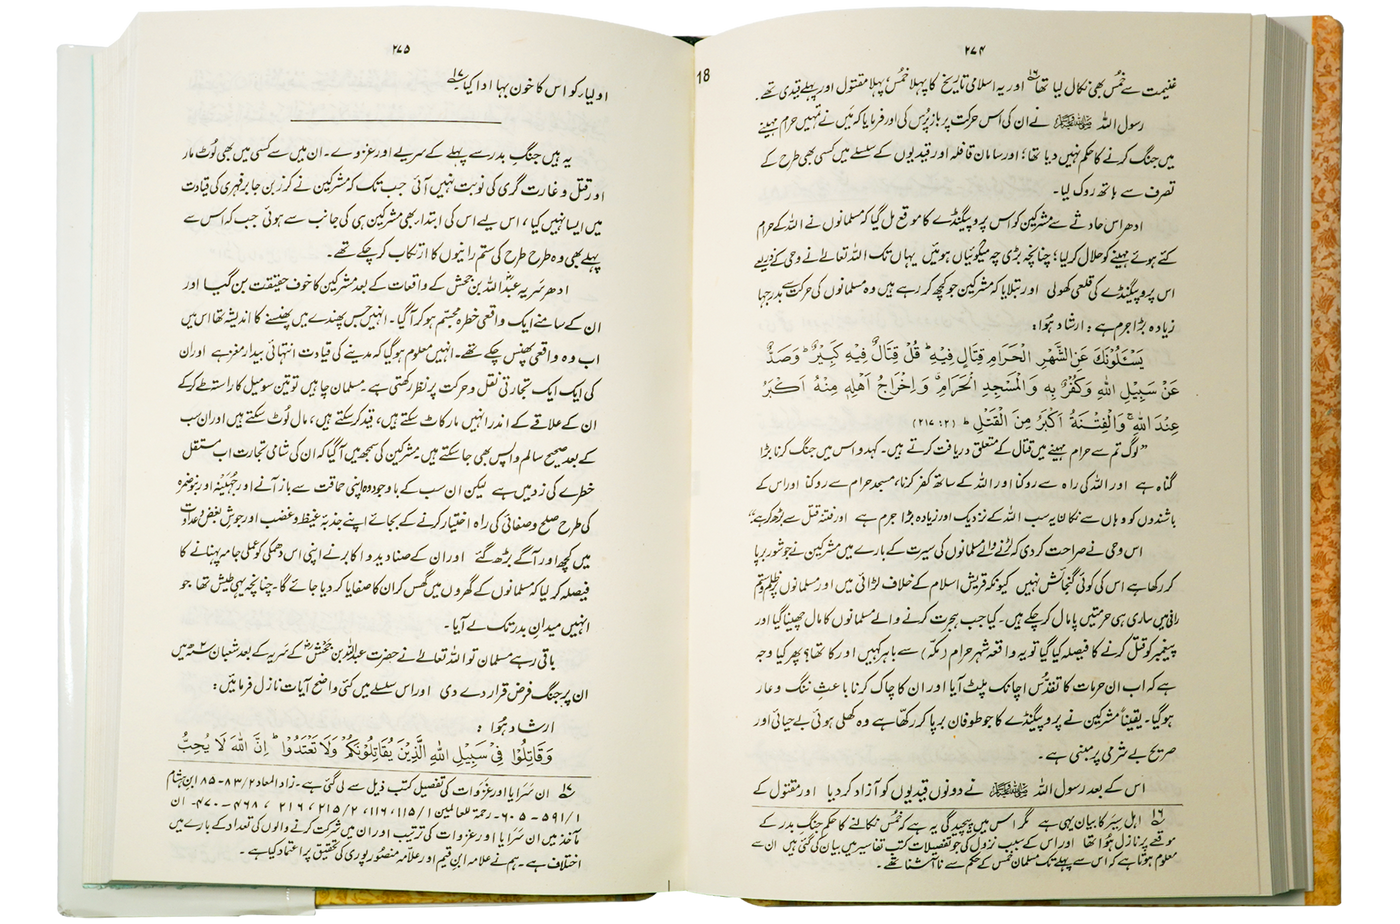 ۲۷۴
غنیمت سے خُمس بھی نکال لیا تھا۱۶ اور یہ اسلامی تاریخ کا پہلا خُمس، پہلا مقتول اور پہلے قیدی تھے۔
رسول اللہ ﷺ نے ان کی اس حرکت پر باز پُرس کی اور فرمایا کہ میں نے تمہیں حرام مہینے
میں جنگ کرنے کا حکم نہیں دیا تھا؛ اور سامان قافلہ اور قیدیوں کے سلسلے میں کسی بھی طرح کے
تصرف سے ہاتھ روک لیا۔
ادھر اس حادثے سے مشرکین کو اس پروپیگنڈے کا موقع مل گیا کہ مسلمانوں نے اللہ کے حرام
کئے ہوئے مہینے کو حلال کر لیا؛ چنانچہ بڑی چہ میگوئیاں ہوئیں یہاں تک اللہ تعالےٰ نے وحی کے ذریعے
اس پروپیگنڈے کی قلعی کھولی اور بتلایا کہ مشرکین جو کچھ کر رہے ہیں وہ مسلمانوں کی حرکت سے بدرجہا
زیادہ بڑا جرم ہے: ارشاد ہُوا:
يَسْـَٔلُوْنَكَ عَنِ الشَّهْرِ الْحَرَامِ قِتَالٍ فِيْهِ ۖ قُلْ قِتَالٌ فِيْهِ كَبِيْرٌ ۖ وَصَدٌّ
عَنْ سَبِيْلِ اللهِ وَكُفْرٌۢ بِهٖ وَالْمَسْجِدِ الْحَرَامِ وَاِخْرَاجُ اَهْلِهٖ مِنْهُ اَكْبَرُ
عِنْدَ اللهِ ۚ وَالْفِتْنَةُ اَكْبَرُ مِنَ الْقَتْلِ ۖ (۲: ۲۱۷)
”لوگ تم سے حرام مہینے میں قتال کے متعلق دریافت کرتے ہیں۔ کہدو اس میں جنگ کرنا بڑا
گناہ ہے اور اللہ کی راہ سے روکنا اور اللہ کے ساتھ کفر کرنا، مسجد حرام سے روکنا اور اس کے
باشندوں کو وہاں سے نکالنا یہ سب اللہ کے نزدیک اور زیادہ بڑا جرم ہے اور فتنہ قتل سے بڑھ کر ہے“
اس وحی نے صراحت کر دی کہ لڑنے والے مسلمانوں کی سیرت کے بارے میں مشرکین نے جو شور برپا
کر رکھا ہے اس کی کوئی گنجائش نہیں کیونکہ قریش اسلام کے خلاف لڑائی میں اور مسلمانوں پر ظلم و ستم
رانی میں ساری ہی حرمتیں پامال کر چکے ہیں۔ کیا جب ہجرت کرنے والے مسلمانوں کا مال چھینا گیا اور
پیغمبر کو قتل کرنے کا فیصلہ کیا گیا تو یہ واقعہ شہر حرام (مکہ) سے باہر کہیں اور کا تھا؟ پھر کیا وجہ
ہے کہ اب ان حرمات کا تقدّس اچانک پلٹ آیا اور ان کا چاک کرنا باعثِ ننگ و عار
ہو گیا۔ یقیناً مشرکین نے پروپیگنڈے کا جو طوفان برپا کر رکھا ہے وہ کھلی ہوئی بے حیائی اور
صریح بے شرمی پر مبنی ہے۔
اس کے بعد رسول اللہ ﷺ نے دونوں قیدیوں کو آزاد کر دیا اور مقتول کے
۱۶ اہل سِیَر کا بیان یہی ہے مگر اس میں پیچیدگی یہ ہے کہ خُمس نکالنے کا حکم جنگ بدر کے
موقعے پر نازل ہُوا تھا اور اس کے سبب نزول کی جو تفصیلات کتب تفاسیر میں بیان کی گئی ہیں ان سے
معلوم ہوتا ہے کہ اس سے پہلے تک مسلمان خُمس کے حکم سے نا آشنا تھے۔
18
۲۷۵
اولیاء کو اس کا خون بہا ادا کیا۔۱۷
یہ ہیں جنگِ بدر سے پہلے کے سریے اور غزوے۔ ان میں سے کسی میں بھی لُوٹ مار
اور قتل و غارت گری کی نوبت نہیں آئی جب تک کہ مشرکین نے کرز بن جابر فہری کی قیادت
میں ایسا نہیں کیا، اس لیے اس کی ابتداء بھی مشرکین ہی کی جانب سے ہوئی جب کہ اس سے
پہلے بھی وہ طرح طرح کی ستم رانیوں کا ارتکاب کر چکے تھے۔
ادھر سَریہ عبداللہؓ بن جحش کے واقعات کے بعد مشرکین کا خوف حقیقت بن گیا اور
ان کے سامنے ایک واقعی خطرہ مجسم ہو کر آ گیا۔ انہیں جس پھندے میں پھنسنے کا اندیشہ تھا اس میں
اب وہ واقعی پھنس چکے تھے۔ انہیں معلوم ہو گیا کہ مدینے کی قیادت انتہائی بیدار مغز ہے اور ان
کی ایک ایک تجارتی نقل و حرکت پر نظر رکھتی ہے۔ مسلمان چاہیں تو تین سو میل کا راستہ طے کر کے
ان کے علاقے کے اندر انہیں مار کاٹ سکتے ہیں، قید کر سکتے ہیں، مال لُوٹ سکتے ہیں اور ان سب
کے بعد صحیح سالم واپس بھی جا سکتے ہیں۔ مشرکین کی سمجھ میں آ گیا کہ ان کی شامی تجارت اب مستقل
خطرے کی زد میں ہے لیکن ان سب کے باوجود وہ اپنی حماقت سے باز آنے اور جُہَیْنہ اور بنو ضمرہ
کی طرح صلح و صفائی کی راہ اختیار کرنے کے بجائے اپنے جذبۂ غیظ و غضب اور جوشِ بغض و عداوت
میں کچھ اور آگے بڑھ گئے اور ان کے صنادید و اکابر نے اپنی اس دھمکی کو عملی جامہ پہنانے کا
فیصلہ کر لیا کہ مسلمانوں کے گھروں میں گھس کر ان کا صفایا کر دیا جائے گا۔ چنانچہ یہی طیش تھا جو
انہیں میدان بدر تک لے آیا۔
باقی رہے مسلمان تو اللہ تعالےٰ نے حضرت عبداللہؓ بن جحش کے سَریہ کے بعد شعبان ۲ھ میں
ان پر جنگ فرض قرار دے دی اور اس سلسلے میں کئی واضح آیات نازل فرمائیں:
ارشاد ہُوا:
وَقَاتِلُوْا فِيْ سَبِيْلِ اللهِ الَّذِيْنَ يُقَاتِلُوْنَكُمْ وَلَا تَعْتَدُوْا ۖ اِنَّ اللهَ لَا يُحِبُّ
۱۷ ان سَرایا اور غزوات کی تفصیل کتب ذیل سے لی گئی ہے۔ زاد المعاد ۲/۸۳-۸۵ ابن ہشام
۱/۵۹۱-۶۰۵۔ رحمۃ للعالمین ۱/۱۱۵، ۱۱۶، ۲/۲۱۵، ۲۱۶، ۴۶۸-۴۷۰۔ ان
مآخذ میں ان سَرایا اور غزوات کی ترتیب اور ان میں شرکت کرنے والوں کی تعداد کے بارے میں
اختلاف ہے۔ ہم نے علامہ ابن قیم اور علامہ منصور پوری کی تحقیق پر اعتماد کیا ہے۔